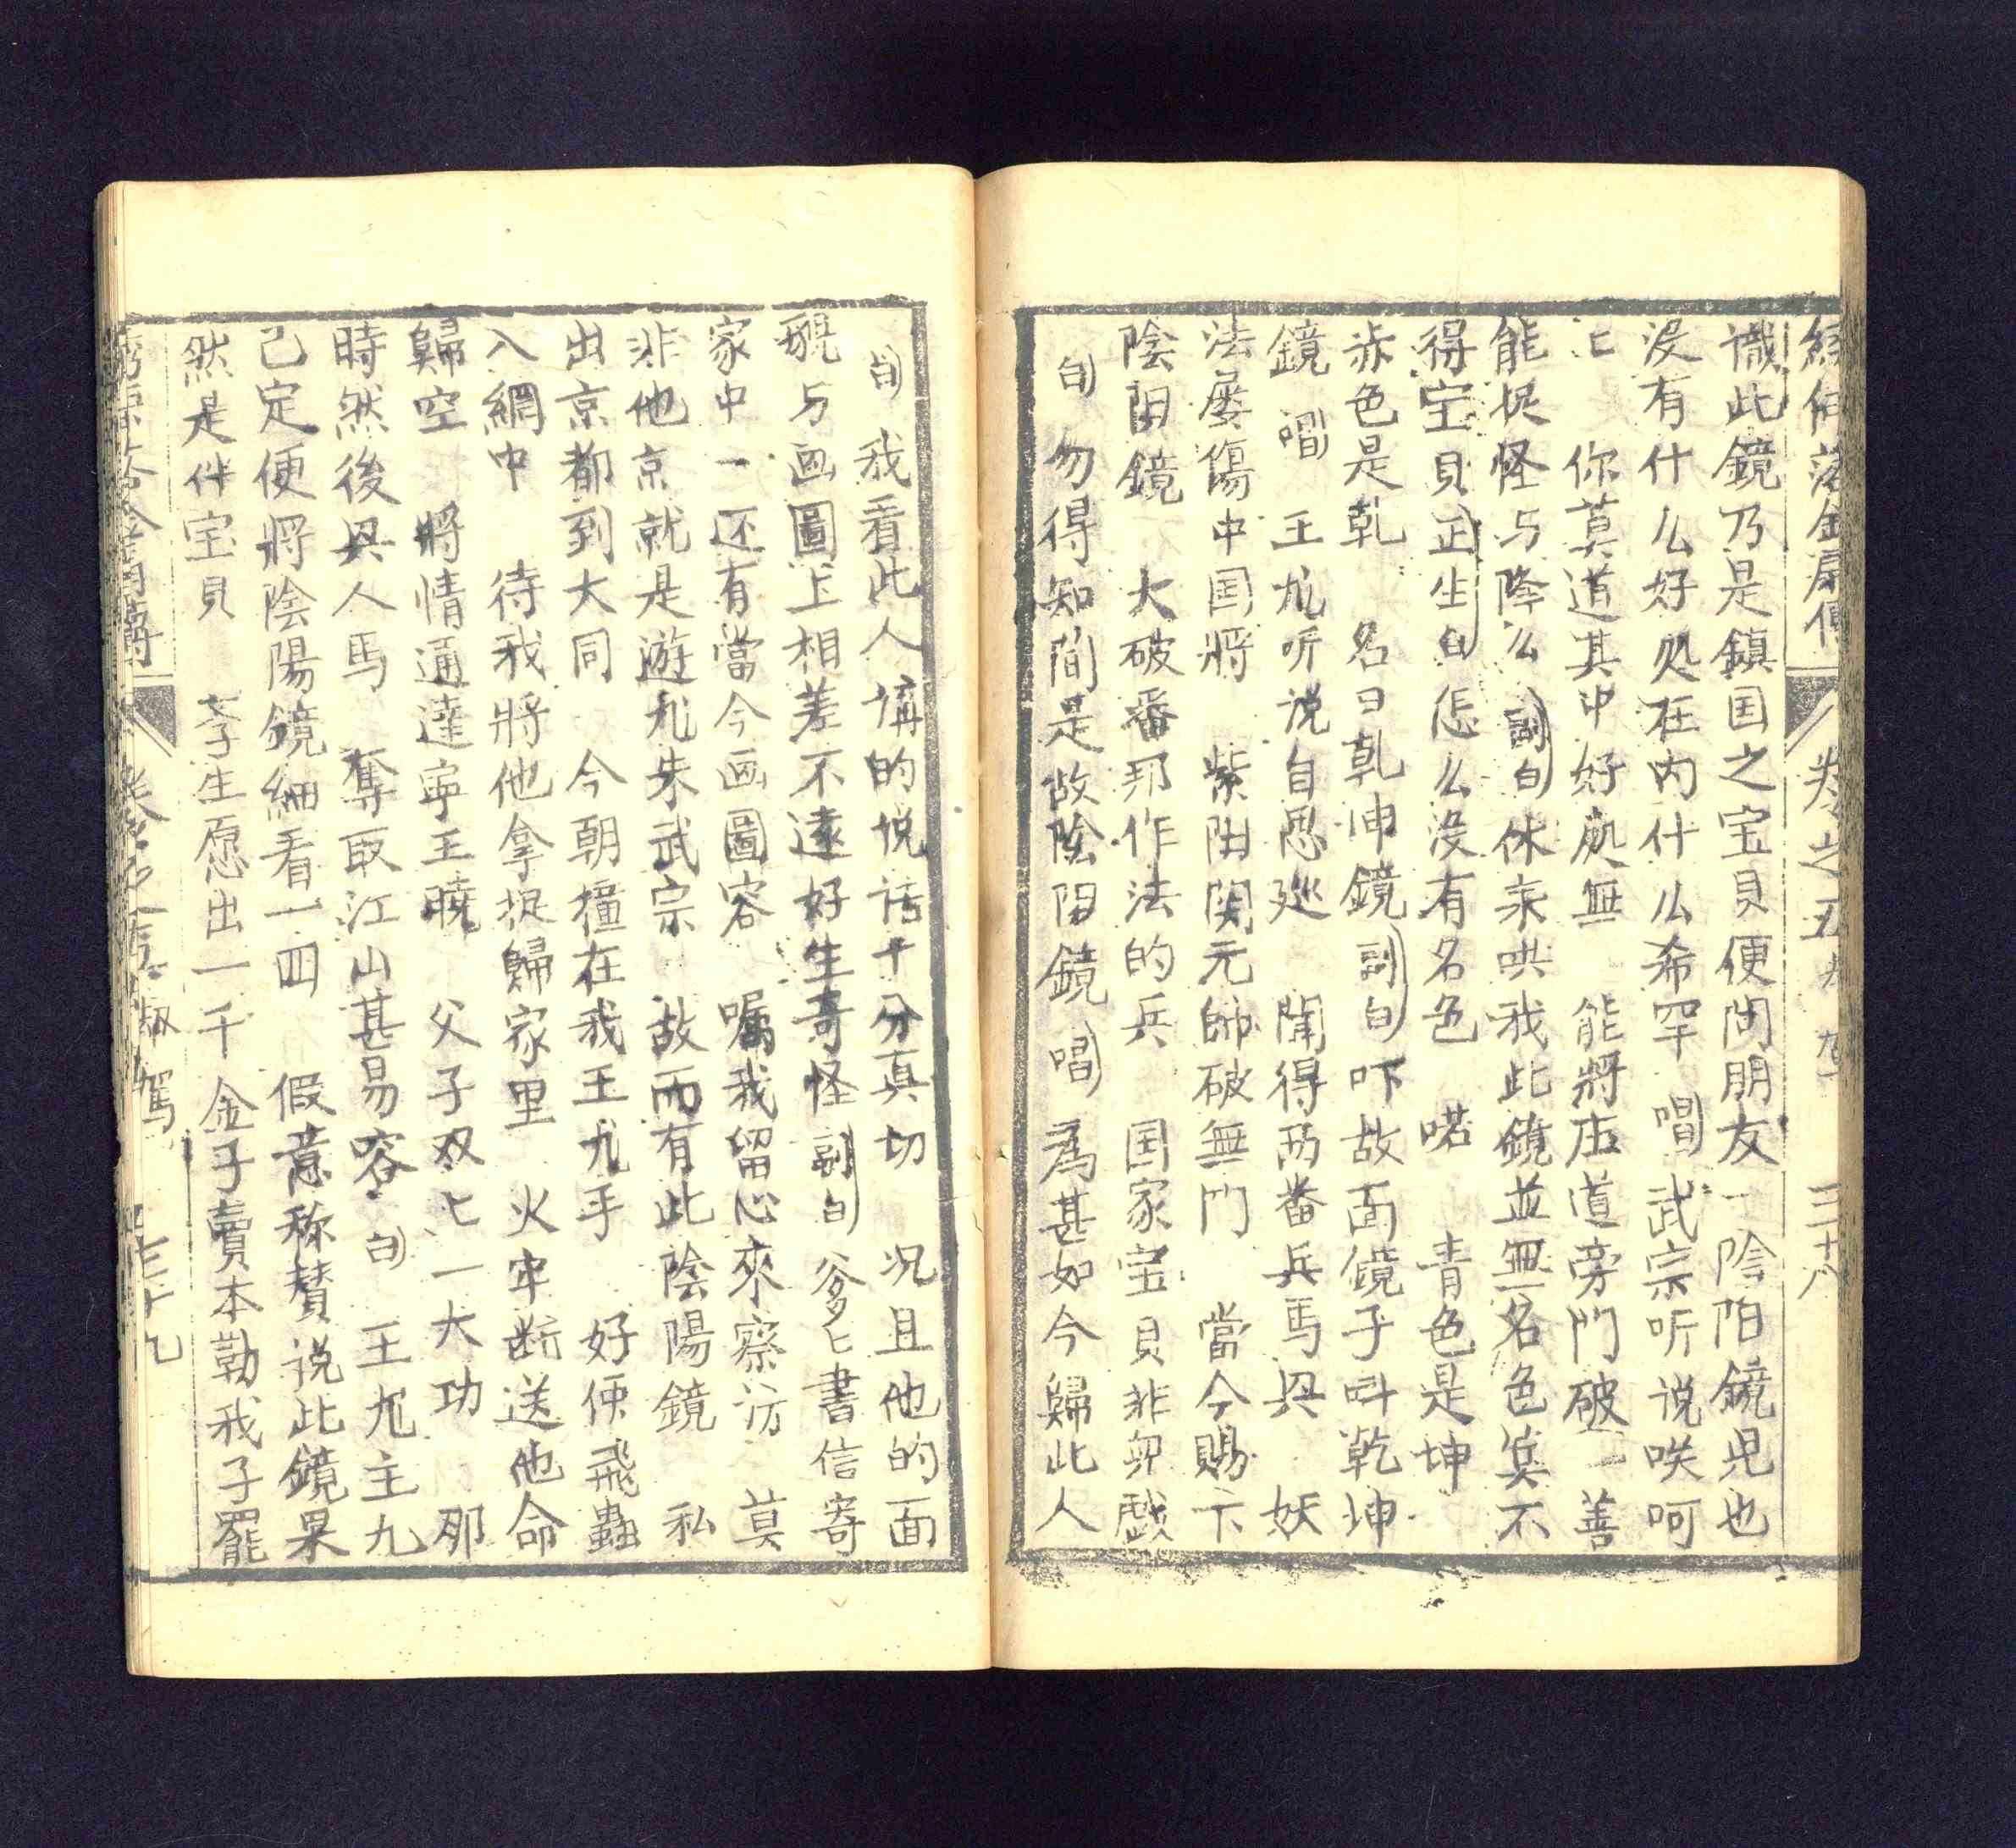 落金扇傳 卷之五 三十八
識此鏡乃是鎮国之宝貝便问朋友一陰阳鏡児也
没有什么好処在内什么希罕 唱 武宗听说唉呵
匕 你莫道其中好処無 能將左道旁门破一善
能捉怪与降么 副白 休来哄我此鏡並無名色算不
得宝貝 正生白 怎么没有名色 喏 青色是坤
赤色是乾 名曰乾坤鏡 副白 吓故面鏡子叫乾坤
鏡 唱 王九听说自思巡 闻得西番兵馬兴 妖
法屡傷中国將 紫荆関元帥破無门 當今赐下
陰阳鏡 大破番邦作法的兵 国家宝貝非児戯
白 勿得知间是故陰阳鏡 唱 為甚如今歸此人
白 我看此人講的说话十分真切 况且他的面
貌与画圖上相差不遠好生奇怪 副白 爹匕書信寄
家中一还有當今画圖容 嘱我留心來察访 莫
非他京就是遊九朱武宗 故而有此陰陽鏡 私
出京都到大同 今朝撞在我王九手 好便飛蟲
入網中 待我將他拿捉歸家里 火牢断送他命
歸空 將情通達宁王曉 父子双匕一大功 那
時然後兴人馬 奪取江山甚易容 白 王九主九
己定便將陰陽鏡細看一四 假意称賛说此鏡果
然是件宝貝 李生愿出一千金子賣本勒我子罷
卷之五 駕 三十九